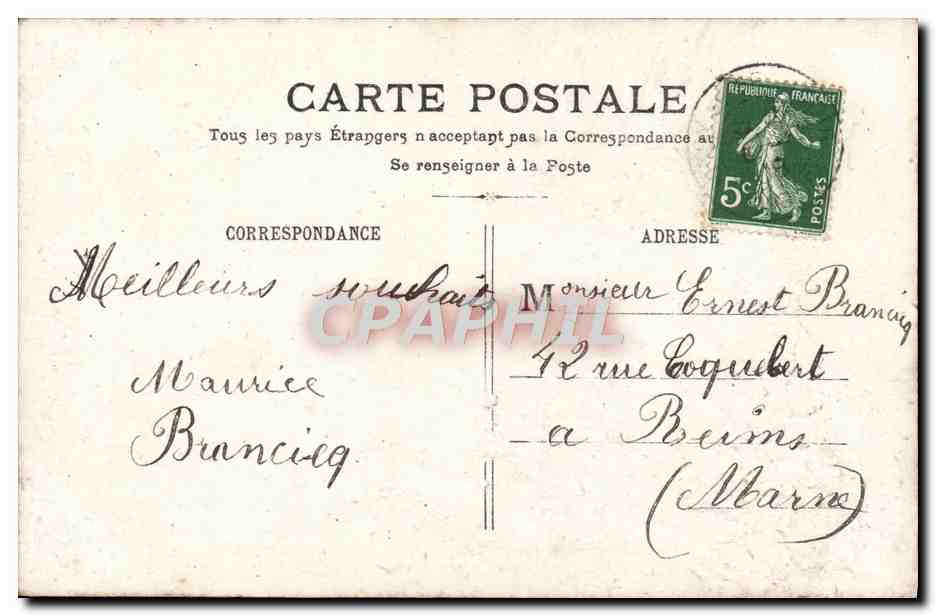 CARTE POSTALE
RÉPUBLIQUE FRANÇAISE
5c
POSTES
Tous les pays Étrangers n acceptant pas la Correspondance au
Se renseigner à la Poste
CORRESPONDANCE
ADRESSE
Meilleurs souhaits
Maurice
Brancicq
Monsieur Ernest Brancicq
42 rue Coquebert
a Reims
(Marne)
CPAPHIL